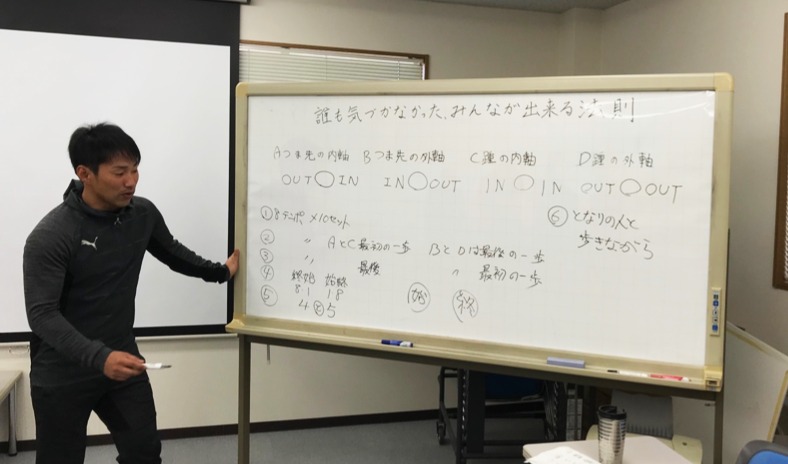 誰も気づかなかった、みんなが出来る法則
Aつま先の内軸 Bつま先の外軸 C踵の内軸 D踵の外軸
OUT○IN IN○OUT IN○IN OUT○OUT
①8テンポ×10セット
② 〃 AとC最初の一歩 BとDは最後の一歩
③ 〃 最後 〃 最初の一歩
④ 終始 始終
8 1 1 8
⑤ 4と5 始 終
⑥となりの人と
歩きながら